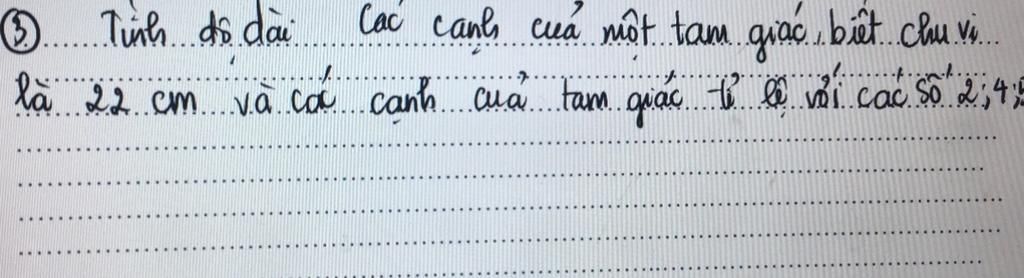 ③ Tính độ dài các cạnh cuả một tam giác, biết chu vi
là 22 cm và các cạnh cuả tam giác tỉ lệ với các số 2; 4; 5